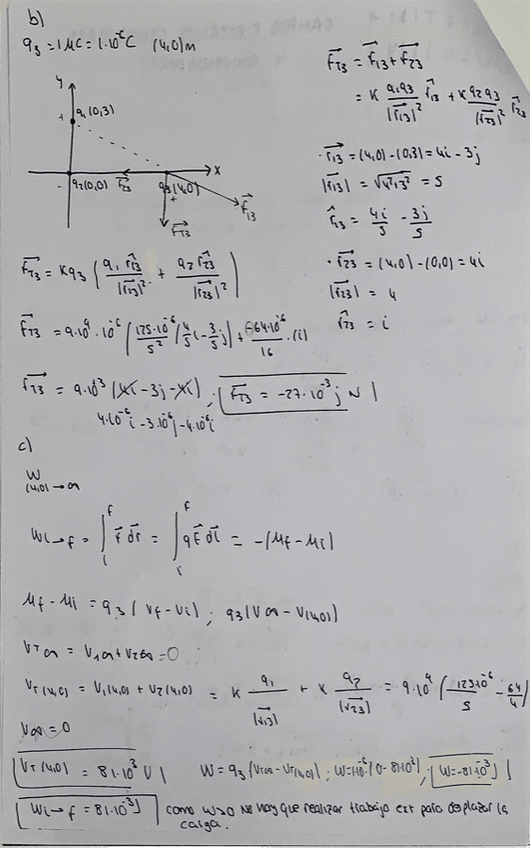 b)
q3 = 1 μC = 1·10^-6 C (4,0)m
y
q1 (0,3)
x
q2(0,0)
F23
q3(4,0)
+
F13
FT3
FT3 = F13 + F23
= K q1q3/|r13|² r̂13 + K q2q3/|r23|² r̂23
· r13 = (4,0) - (0,3) = 4i - 3j
|r13| = √4²+3² = 5
r̂13 = 4i/5 - 3j/5
· r23 = (4,0) - (0,0) = 4i
|r23| = 4
r̂23 = i
FT3 = Kq3 ( q1 r̂13/|r13|² + q2 r̂23/|r23|² )
FT3 = 9·10^9 · 10^-6 ( 125·10^-6/5² (4/5 i - 3/5 j) + -64·10^-6/16 · (i)
FT3 = 9·10^3 (4i - 3j - 4i) ; FT3 = -27·10^-3 j N
4·10^-6 i - 3·10^-6 j - 4·10^-6 i
c)
W
(4,0) → ∞
Wi→f = ∫ i f F dr = ∫ i f qE dl = -(Uf - Ui)
Uf - Ui = q3 (Vf - Vi) ; q3(V∞ - V(4,0))
VT∞ = V1∞ + V2∞ = 0
VT(4,0) = V1(4,0) + V2(4,0) = K q1/|r13| + K q2/|r23| = 9·10^9 ( 125·10^-6/5 - 64/4
V∞ = 0
VT(4,0) = 81·10^3 V W = q3 (VT∞ - VT(4,0)) ; W = 1·10^-6 (0 - 81·10^3) ; W = -81·10^-3 J
Wi→f = 81·10^-3 J como W>0 No hay que realizar trabajo ext para desplazar la
carga.